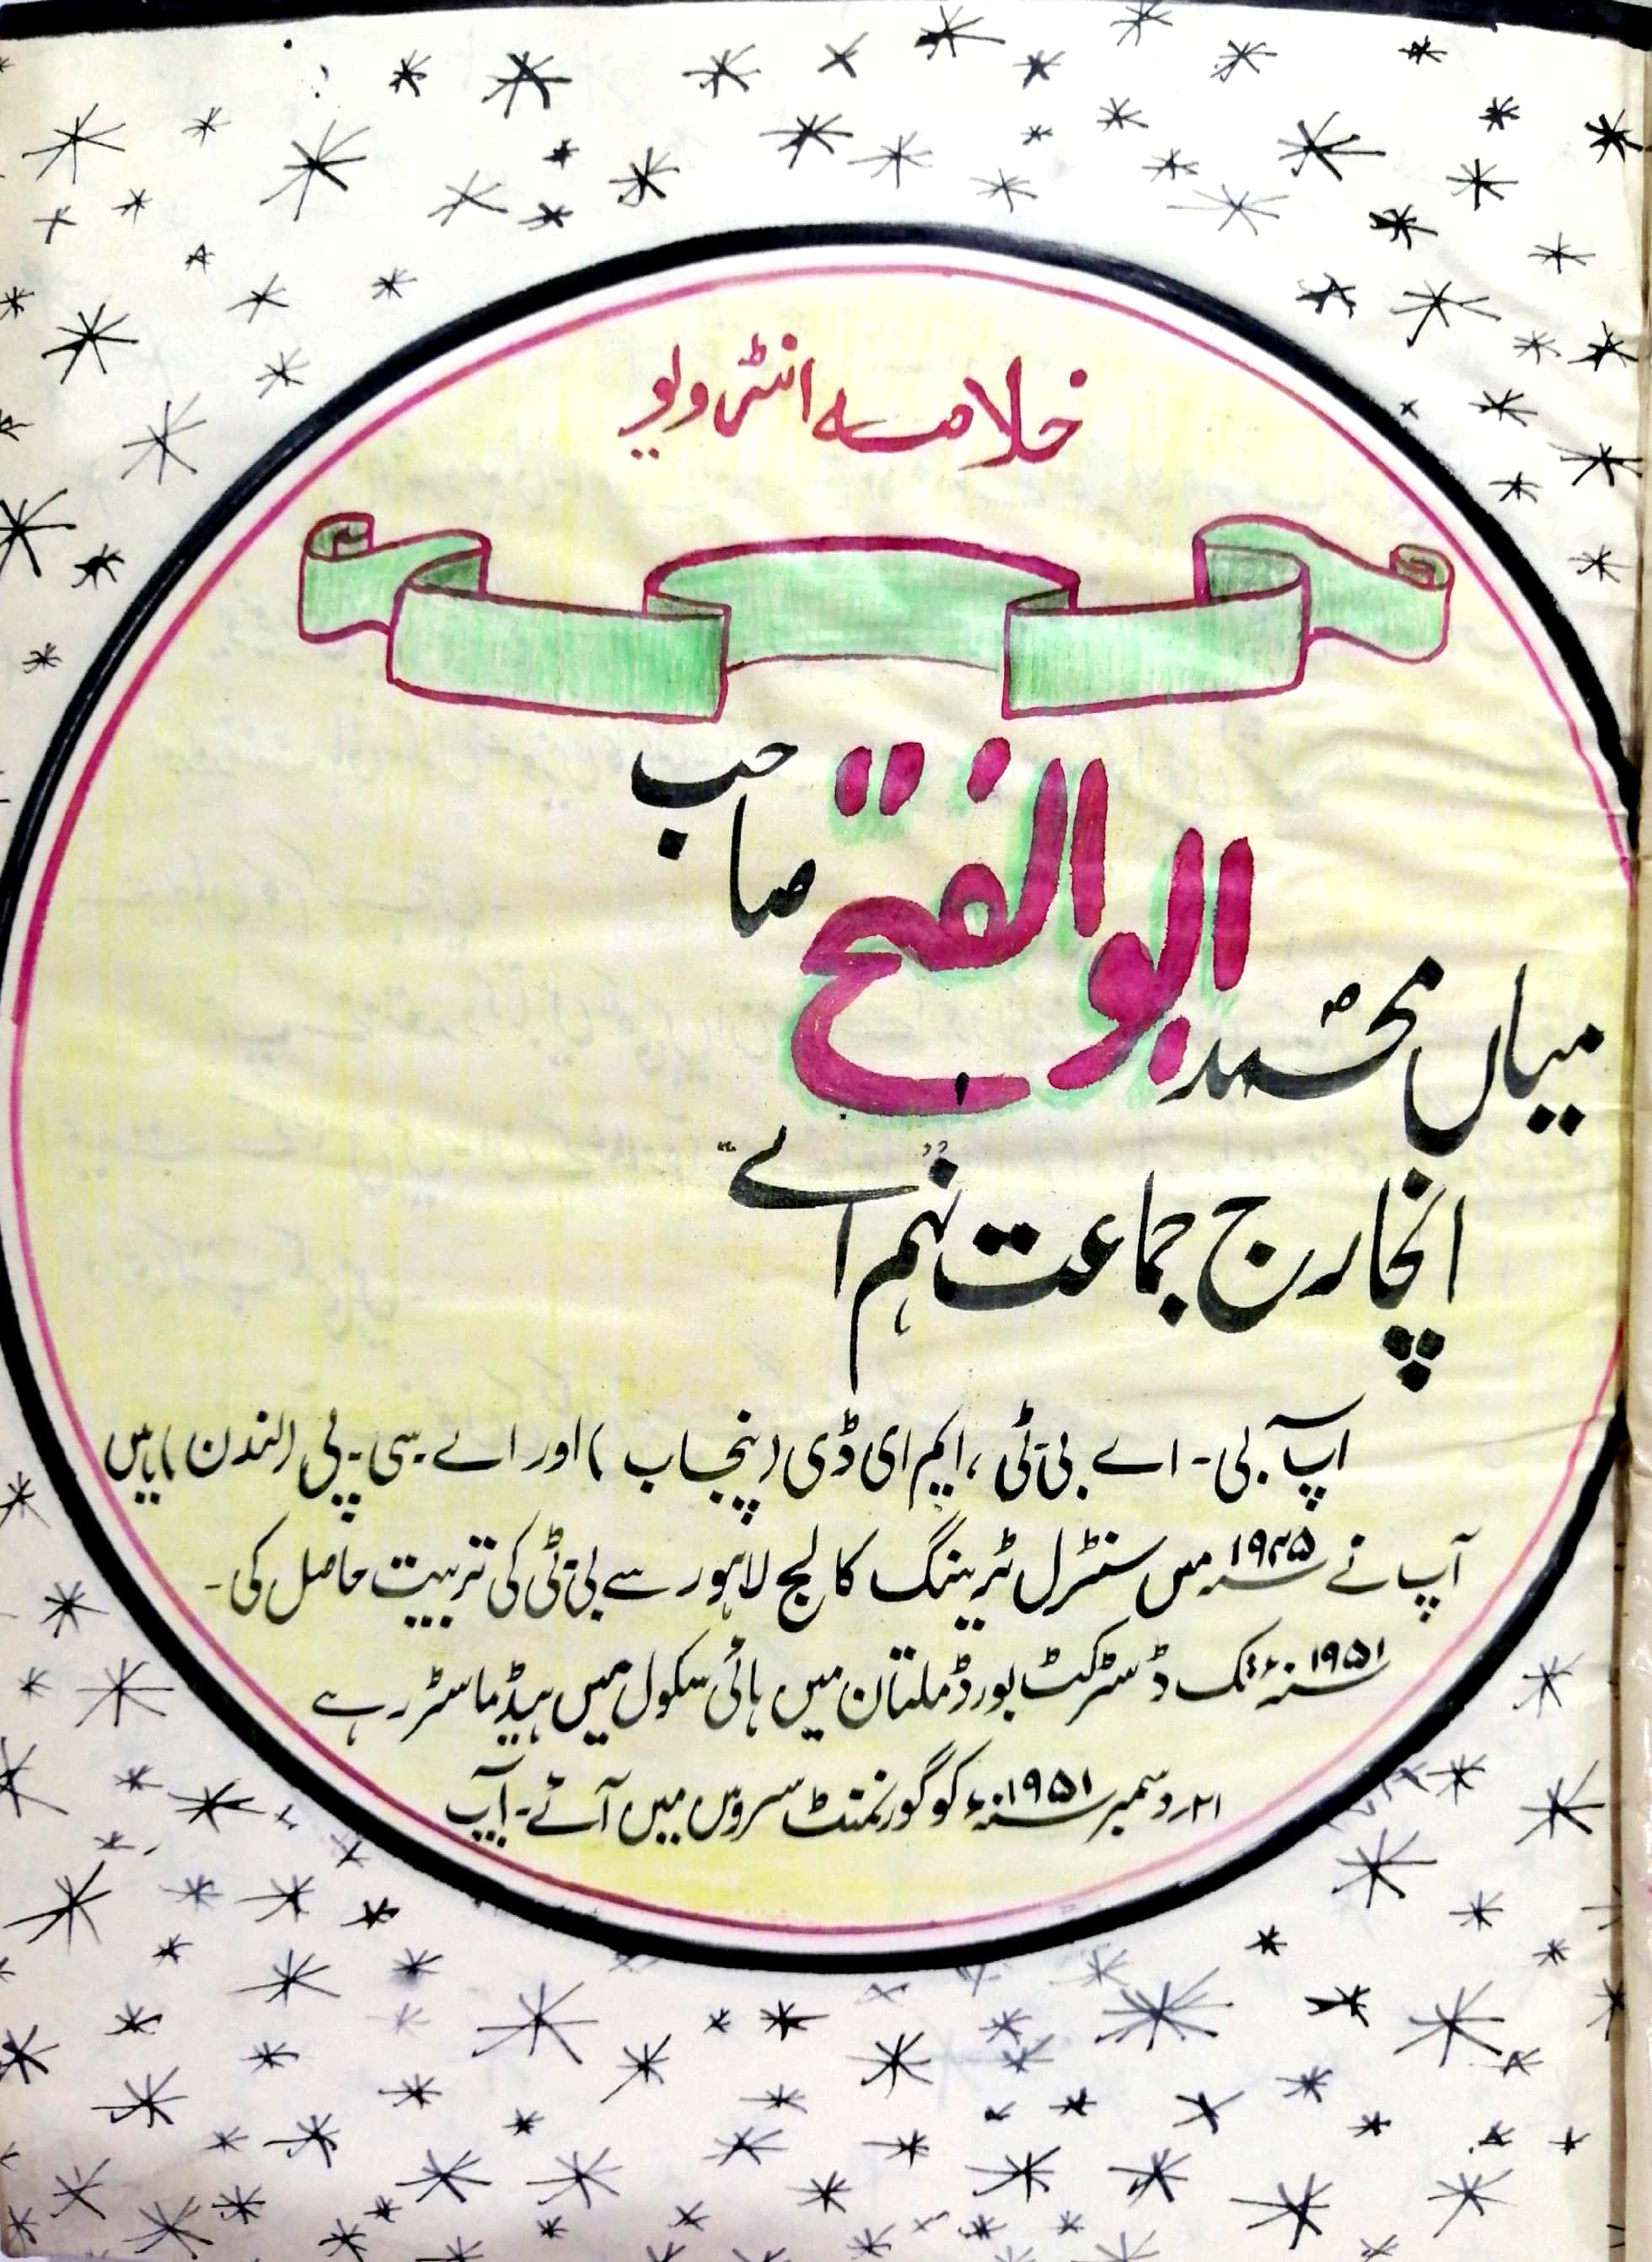 خلاصہ انٹرویو
میاں محمد ابوالفتح صاحب
انچارج جماعت نہم "اے"
آپ بی-اے بی-ٹی، ایم ای ڈی (پنجاب) اور اے-سی-پی (لندن) ہیں
آپ نے سنہ ۱۹۴۵ میں سنٹرل ٹریننگ کالج لاہور سے بی-ٹی کی تربیت حاصل کی-
سنہ ۱۹۵۱ء تک ڈسٹرکٹ بورڈ ملتان میں ہائی سکول میں ہیڈماسٹر رہے
۲۱ر دسمبر سنہ ۱۹۵۱ء کو گورنمنٹ سروس میں آئے- آپ